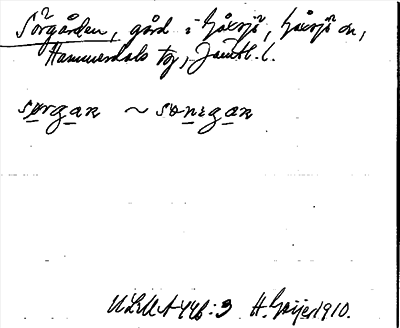 Sörgården, gård i Håxsjö, Håxsjö sn,
Hammerdals tg, Jämtl. l.
sørgan ~ sønıgan
ULMA 446:3 H. Geijer 1910.